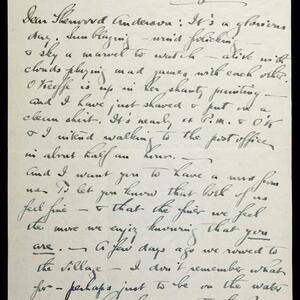 Dear Sherwood Anderson: It's a glorious
day. Sun blazing — wind frolicking
& sky a marvel to watch — alive with
clouds playing mad games with each other.
O'Keeffe is up in her shanty painting —
and I have just shaved & put on a
clean shirt. It's nearly 6 P.M. & O'K
& I intend walking to the post office
in about half an hour. —
And I want you to have a word from
me. To let you know that both of us
feel fine — & that the finer we feel
the more we enjoy knowing that you
are. — A few days ago we rowed to
the Village — I don't remember what
for — perhaps just to be on the water